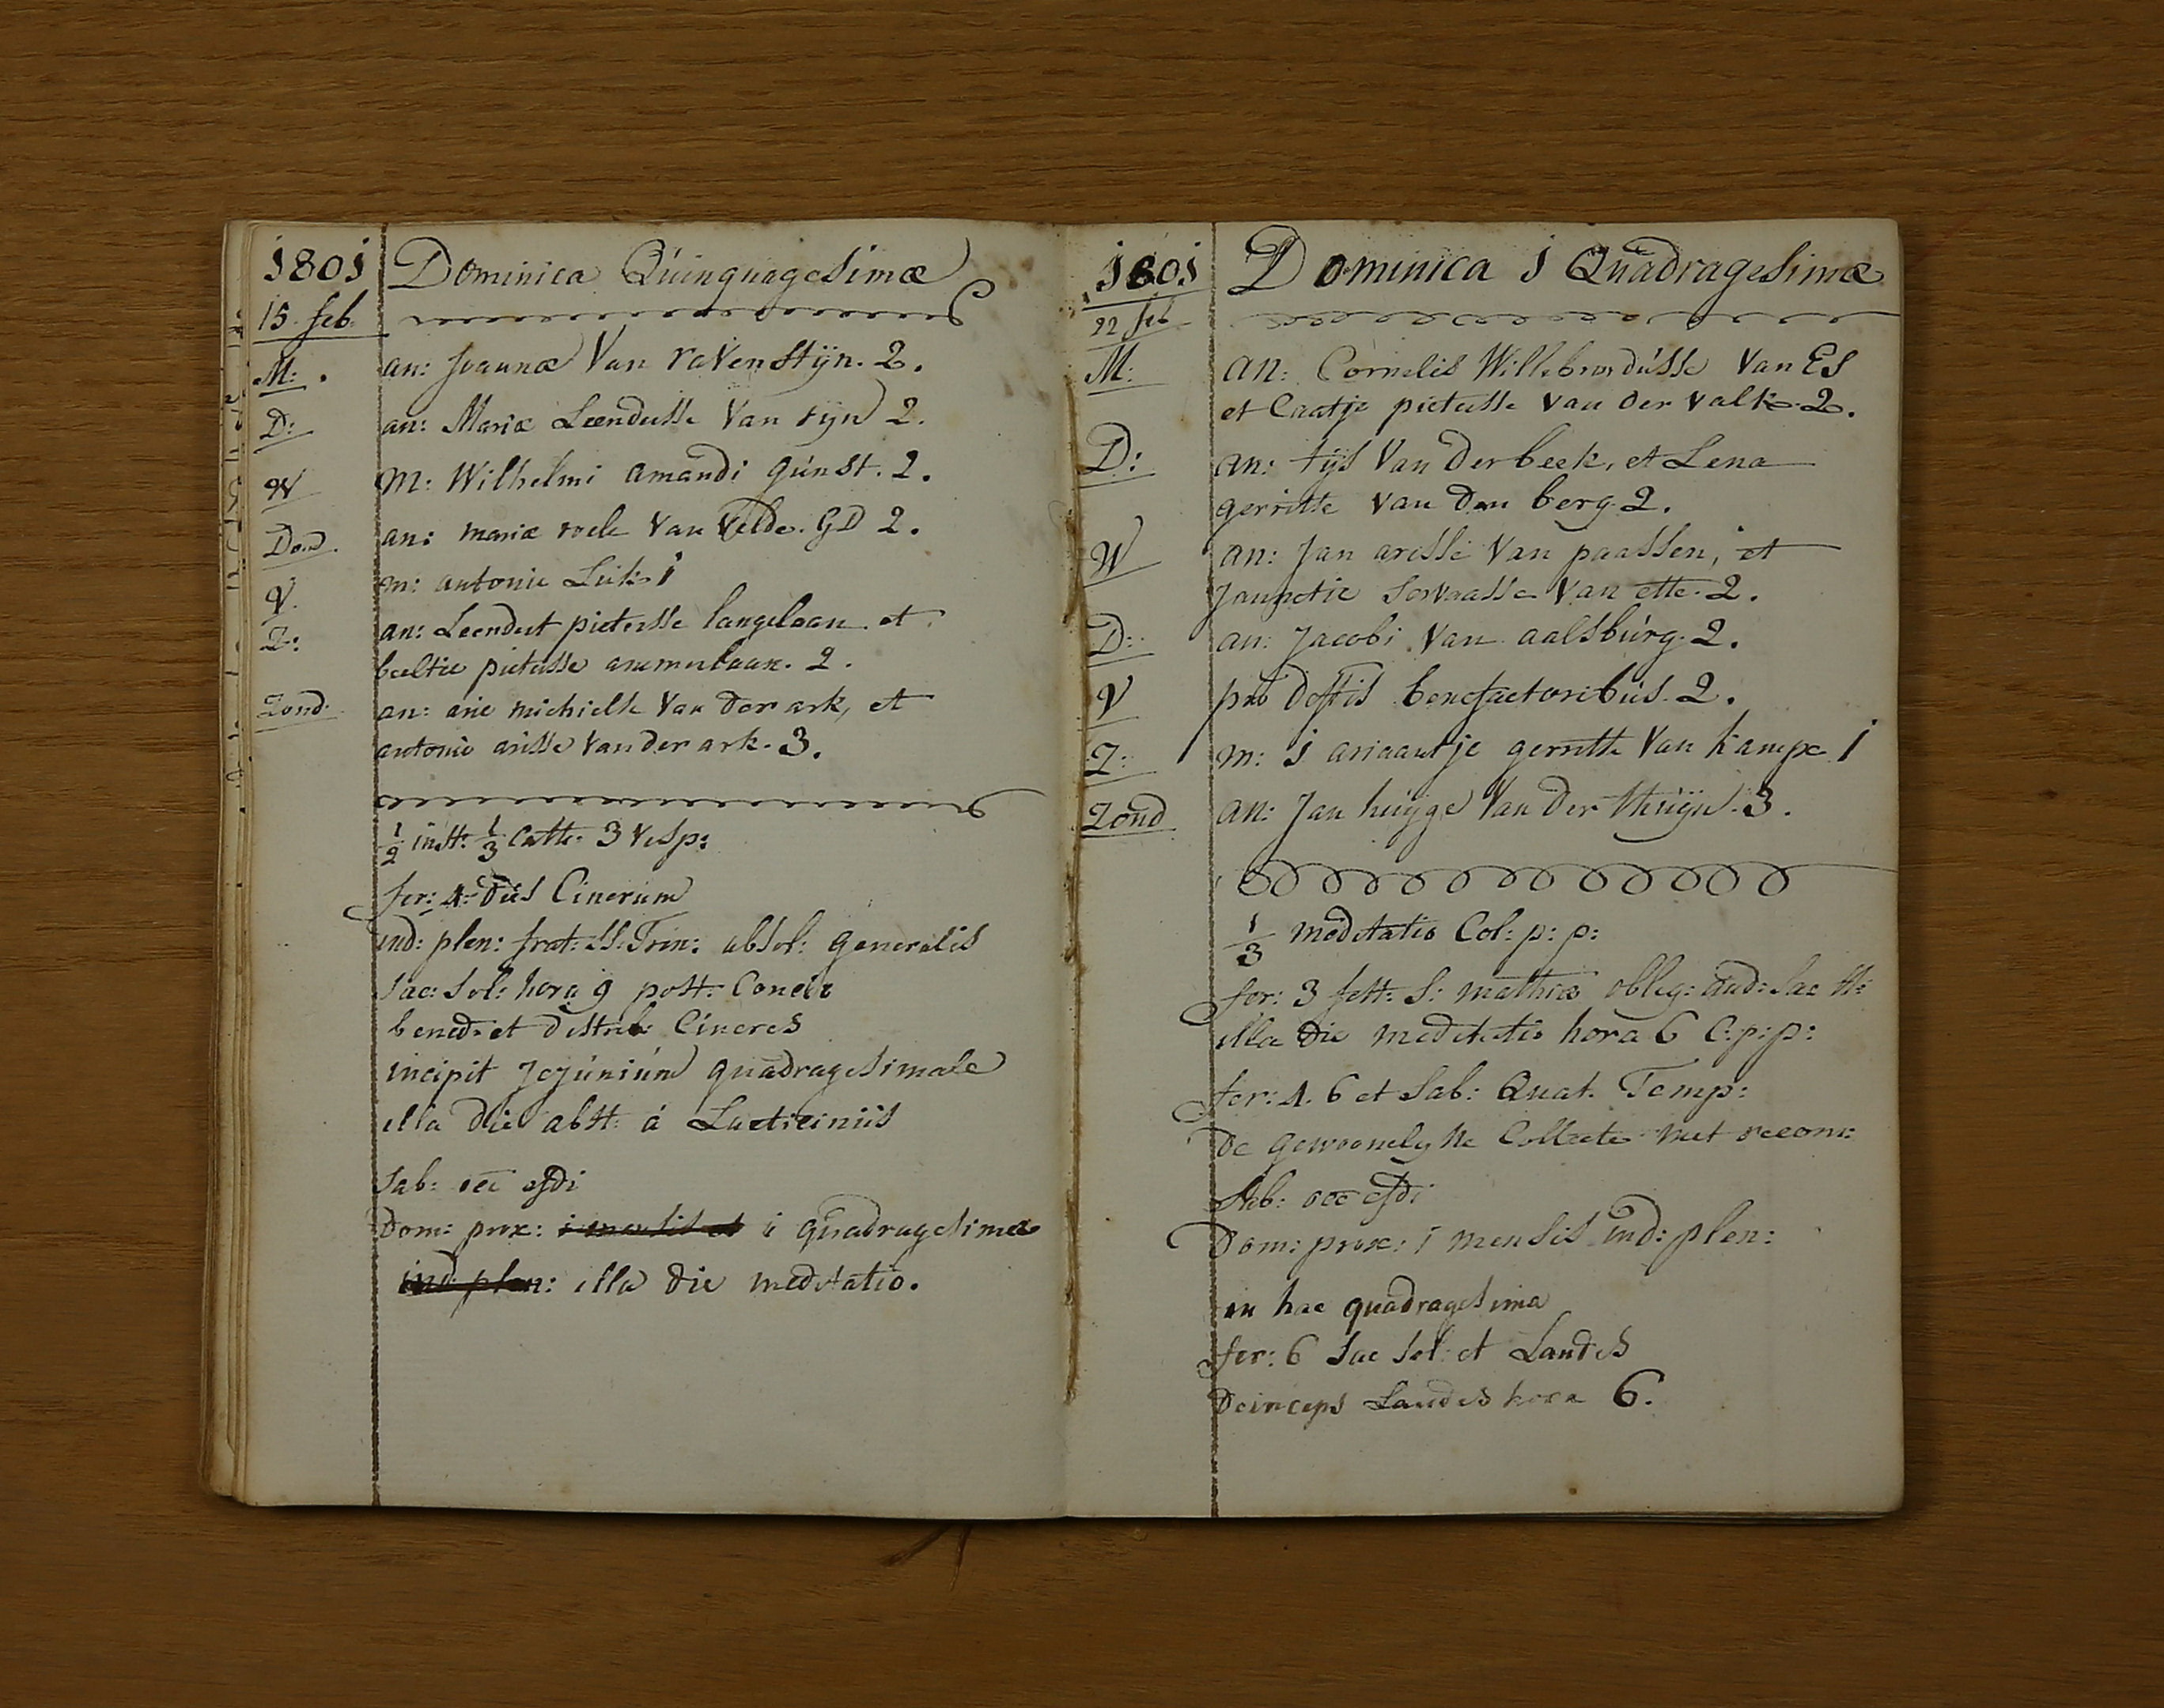 1801 Dominica Quinquagesimæ
15. feb.
M: an: Joannæ Van ravenstijn. 2.
D: an: Mariæ Leendertsse Van rijn 2.
W m: Wilhelmi amandi gunst. 2.
Dond. an: mariæ roele Van Velde. GD 2.
V. m: antonie Luk 1
Z: an: Leendert pietersse langelaan et
beeltie pietersse ammerlaan. 2.
Zond. an: arie michielse Van der ark, et
antonie arisse Van der ark. 3.
1/2 instr: 1/3 Cath. 3 vesp:
fer: 4. dies Cinerum
ind: plen: frat: SS. Trin: absol: generalis
Sac: Sol: hora 9 post Concio
bened. et distrib: Cineres
incipit Jejunium quadragesimale
illa die abst: á Lacticiniis
Sab: occ esdi
Dom: prox: i mensis et i quadragesimæ
ind: plen: illa die meditatio.
1801 Dominica 1 Quadragesimæ
22 feb
M: an: Cornelis Willebrordusse Van Es
et Caatje pieterse van der valk. 2.
D: an: tijs Van der beek, et Lena
gerritse van den berg. 2.
W an: Jan aresse Van paassen, et
Jannetie Servaasse Van ette. 2.
D: an: Jacobi Van aalsburg. 2.
V pro defftis benefactoribus. 2.
Z: m: 1 ariaantje gerritse Van kampe 1
Zond an: Jan huijge Van der Meuijn. 3.
1/3 meditatio Col: p: p:
fer: 3 fest: S: mathiæ oblig: aud: Sac
illa die meditatio hora 6 C: p: p:
fer: 4. 6 et Sab: Quat. Temp:
de gewoonelyke Collecte met recom:
Sab: occ esdi
Dom: prox: 1 mensis ind: plen:
in hac quadragesima
fer: 6 Sac Sol: et Laudes
deinceps Laudes hora 6.